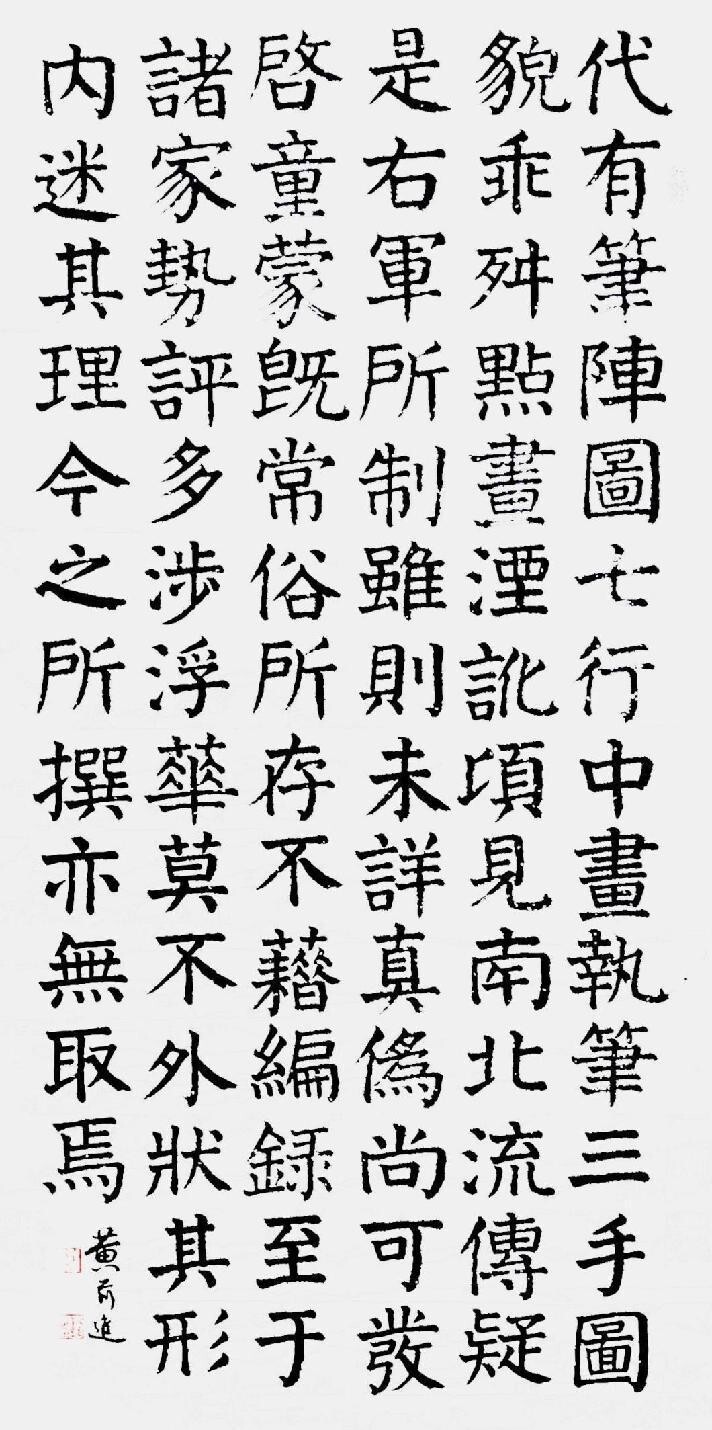 代有筆陣圖七行中畫執筆三手圖
貌乖舛點畫湮訛頃見南北流傳疑
是右軍所制雖則未詳真僞尚可發
啓童蒙既常俗所存不藉編録至于
諸家勢評多涉浮華莫不外狀其形
内迷其理今之所撰亦無取焉
黄前進